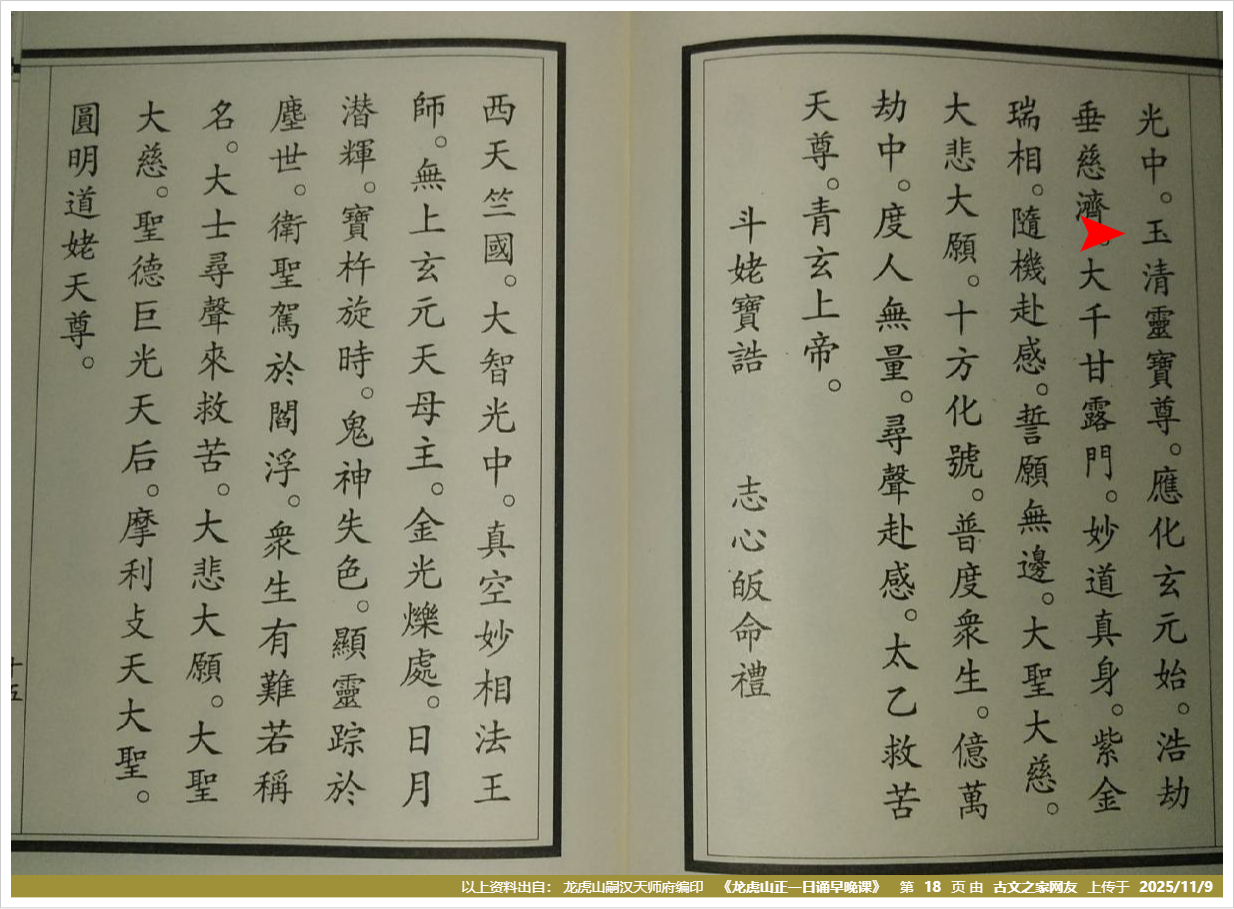 光中。玉清靈寶尊。應化玄元始。浩劫
垂慈濟。大千甘露門。妙道真身。紫金
瑞相。隨機赴感。誓願無邊。大聖大慈。
大悲大願。十方化號。普度衆生。億萬
劫中。度人無量。尋聲赴感。太乙救苦
天尊。青玄上帝。
斗姥寶誥　志心皈命禮
西天竺國。大智光中。真空妙相法王
師。無上玄元天母主。金光爍處。日月
潜輝。寶杵旋時。鬼神失色。顯靈踪於
塵世。衛聖駕於閻浮。衆生有難若稱
名。大士尋聲來救苦。大悲大願。大聖
大慈。聖德巨光天后。摩利攴天大聖。
圓明道姥天尊。
十五
以上资料出自： 龙虎山嗣汉天师府编印 《龙虎山正一日诵早晚课》 第 18 页 由 古文之家网友 上传于 2025/11/9